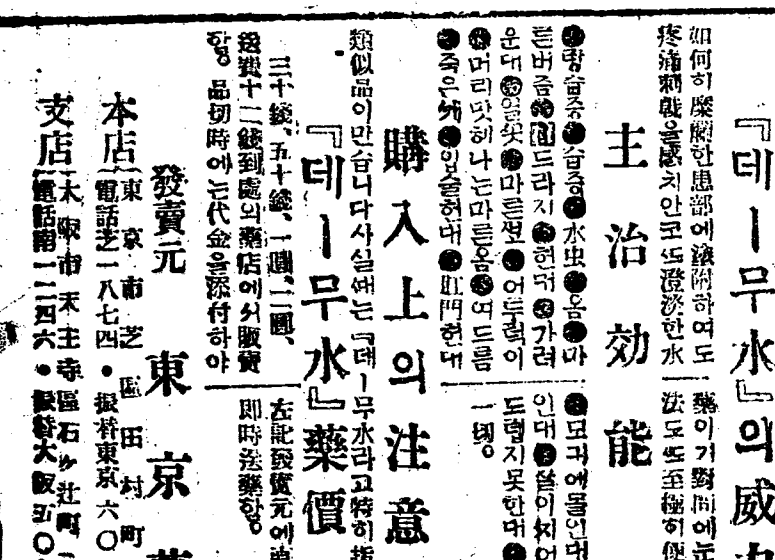 『데ー무水』의威
如何히糜爛한患部에塗附하여도
疼痛刺戟을感치안코또澄淡한水
藥이기對問에는
法도또至極히便
主治効能
습증 水虫 옴 마
른버즘 드라지 헌대 가려
운대 마른썻 어두럭이
머리밋헤나는마른옴 여드름
죽은 입술헌대 肛門헌대
모긔에물인대
인대
드렵지못한대
一切。
購入上의注意
類似品이만습니다사실때는『데ー무水라고特히指
『데ー무水』藥價
三十錢、五十錢、一圓、二圓、
送費十二錢到處의藥店에서販賣
함。品切時에는代金을添付하야
左記發賣元에
即時送藥함。
發賣元 東京
本店 東京市芝區田村町
電話芝一八七四●振替東京六〇
支店 大阪市天王寺區石ヶ辻町
電話南一二四六●振替大阪五〇